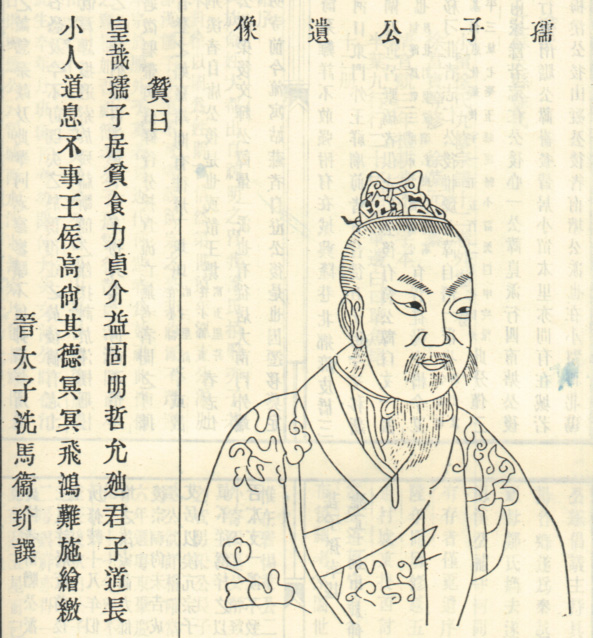 孺子公遺像
贊曰
皇哉孺子居貧食力貞介益固明哲允廸君子道長
小人道息不事王侯高尚其德冥冥飛鴻難施繒繳
晉太子洗馬衞玠譔